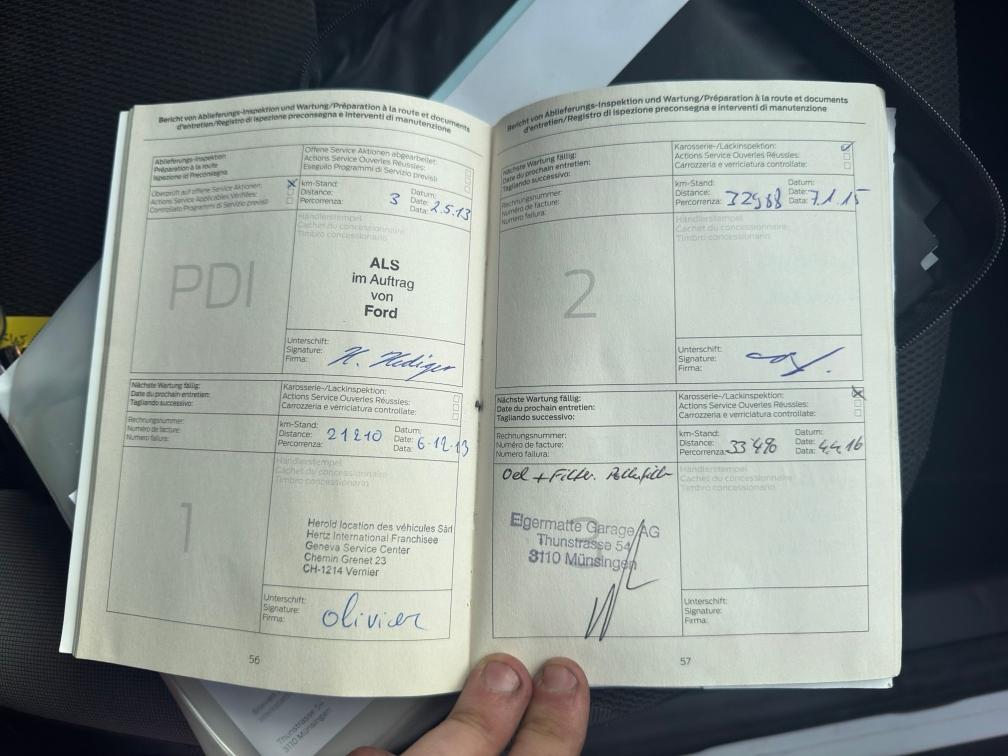 Bericht von Ablieferungs-Inspektion und Wartung/Préparation à la route et documents
d'entretien/Registro di ispezione preconsegna e interventi di manutenzione
Ablieferungs-Inspektion
Préparation à la route
Ispezione di Preconsegna
Offene Service Aktionen abgearbeitet:
Actions Service Ouvertes Réussies:
Eseguito Programmi di Servizio previsti
Überprüft auf offene Service Aktionen:
Actions Service Applicables Vérifiées:
Controllato Programmi di Servizio previsti
km-Stand:
Distance:
Percorrenza: 3
Datum:
Date:
Data: 2.5.13
PDI
Händlerstempel
Cachet du concessionnaire
Timbro concessionario
ALS
im Auftrag
von
Ford
Unterschrift:
Signature:
Firma: H. Hediger
Nächste Wartung fällig:
Date du prochain entretien:
Tagliando successivo:
Karosserie-/Lackinspektion:
Actions Service Ouvertes Réussies:
Carrozzeria e verriciatura controllate:
Rechnungsnummer:
Numéro de facture:
Numero failura:
km-Stand:
Distance: 21210
Percorrenza:
Datum:
Date: 6.12.13
Data:
1
Händlerstempel
Cachet du concessionnaire
Timbro concessionario
Herold location des véhicules Sàrl
Hertz International Franchisee
Geneva Service Center
Chemin Grenet 23
CH-1214 Vernier
Unterschrift:
Signature: olivier
Firma:
56
Bericht von Ablieferungs-Inspektion und Wartung/Préparation à la route et documents
d'entretien/Registro di ispezione preconsegna e interventi di manutenzione
Nächste Wartung fällig:
Date du prochain entretien:
Tagliando successivo:
Karosserie-/Lackinspektion:
Actions Service Ouvertes Réussies:
Carrozzeria e verriciatura controllate:
Rechnungsnummer:
Numéro de facture:
Numero failura:
km-Stand:
Distance:
Percorrenza: 32988
Datum:
Date:
Data: 7.1.15
2
Händlerstempel
Cachet du concessionnaire
Timbro concessionario
Unterschrift:
Signature:
Firma:
Nächste Wartung fällig:
Date du prochain entretien:
Tagliando successivo:
Karosserie-/Lackinspektion:
Actions Service Ouvertes Réussies:
Carrozzeria e verriciatura controllate:
Rechnungsnummer:
Numéro de facture:
Numero failura:
km-Stand:
Distance:
Percorrenza: 33490
Datum:
Date:
Data: 4.4.16
Oel + Filter. Pollenfilter
3
Eigermatte Garage AG
Thunstrasse 54
3110 Münsingen
Händlerstempel
Cachet du concessionnaire
Timbro concessionario
Unterschrift:
Signature:
Firma:
57
Thunstrasse 54
3110 Münsingen